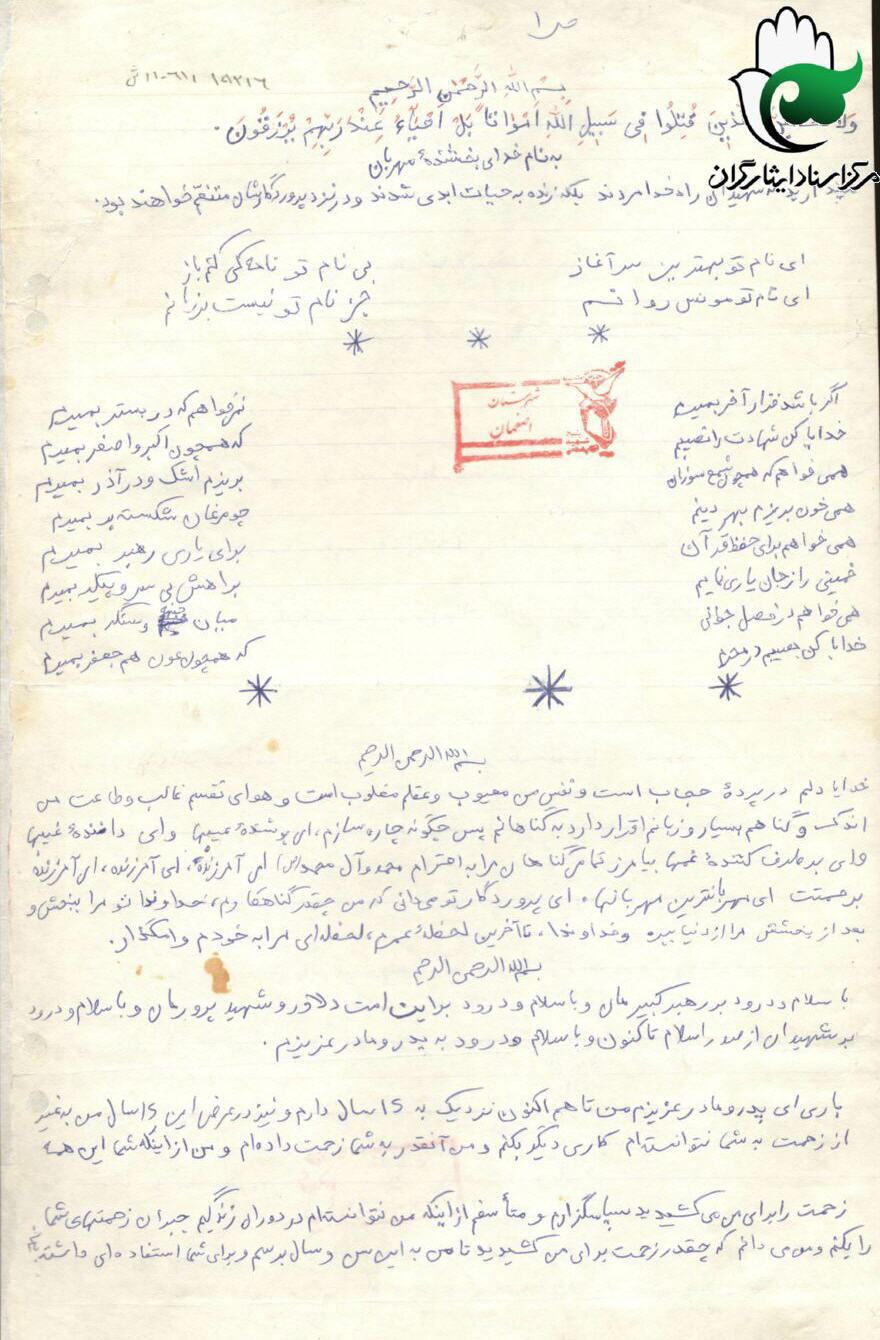 ص ۱
۱۹۲۱۶ ۱۱-۶۱۱ ش
مرکز اسناد ایثارگران
بِسْمِ اللهِ الرَّحْمٰنِ الرَّحیمِ
وَلا الَّذینَ قُتِلُوا فِی سَبیلِ اللهِ اَمْواتاً بَلْ اَحْیاءٌ عِنْدَ رَبِّهِمْ یُرْزَقُونَ.
به نام خدای بخشندهٔ مهربان
شهیدان راه خدا مردند بلکه زنده به حیات ابدی شدند و در نزد پروردگارشان متنعّم خواهند بود.
ای نام تو بهترین سرآغاز بی نام تو نامه کی کنم باز
ای نام تو مونس روانم جز نام تو نیست بر زبانم
* * *
شهرستان
اصفهان
اگر باشد قرار آخر بمیرم نمی‌خواهم که در بستر بمیرم
خدایا کن شهادت را نصیبم که همچون اکبر و اصغر بمیرم
همی خواهم که همچون شمع سوزان بریزم اشک و در آذر بمیرم
همی خون بریزم بهر دینم چو مرغان شکسته پر بمیرم
همی خواهم برای حفظ قرآن برای یاری رهبر بمیرم
خمینی را ز جان یاری نمایم براهش بی سر و پیکر بمیرم
همی خواهم در فصل جوانی میان جبهه و سنگر بمیرم
خدایا کن نصیبم در محرم که همچون عون هم جعفر بمیرم
* * *
بسم الله الرحمن الرحیم
خدایا دلم در پردهٔ حجاب است و نفس من معیوب و عقلم مغلوب است و هوای نفسم غالب و طاعت من
اندک و گناهم بسیار و زبانم اقرار دارد به گناهانم پس چگونه چاره سازم، ای پوشندهٔ عیبها و ای دانندهٔ غیبها
و ای برطرف کنندهٔ غمها بیامرز تمام گناهان مرا به احترام محمد و آل محمد (ص) ای آمرزنده، ای آمرزنده، ای آمرزنده
برحمتت ای مهربانترین مهربانها. ای پروردگار تو می‌دانی که من چقدر گناهکارم، خداوندا تو مرا ببخش و
بعد از بخشش مرا از دنیا ببر، و خداوندا، تا آخرین لحظهٔ عمرم، لحظه‌ای مرا به خودم وامگذار.
بسم الله الرحمن الرحیم
با سلام و درود بر رهبر کبیرمان و با سلام و درود بر این امت دلاور و شهید پرورمان و با سلام و درود
بر شهیدان از صدر اسلام تا کنون و با سلام و درود به پدر و مادر عزیزم.
باری ای پدر و مادر عزیزم من تا هم اکنون نزدیک به ۱۵ سال دارم و نیز در عرض این ۱۵ سال من به غیر
از زحمت به شما نتوانسته‌ام کاری دیگر بکنم و من آنقدر به شما زحمت داده‌ام و من از اینکه شما این همه
زحمت را برای من می‌کشیدید سپاسگزارم و متأسفم از اینکه من نتوانسته‌ام در دوران زندگیم جبران زحمتهای شما
را بکنم و من می دانم که چقدر زحمت برای من کشیدید تا من به این سن و سال برسم و برای شما استفاده‌ای داشته باشم